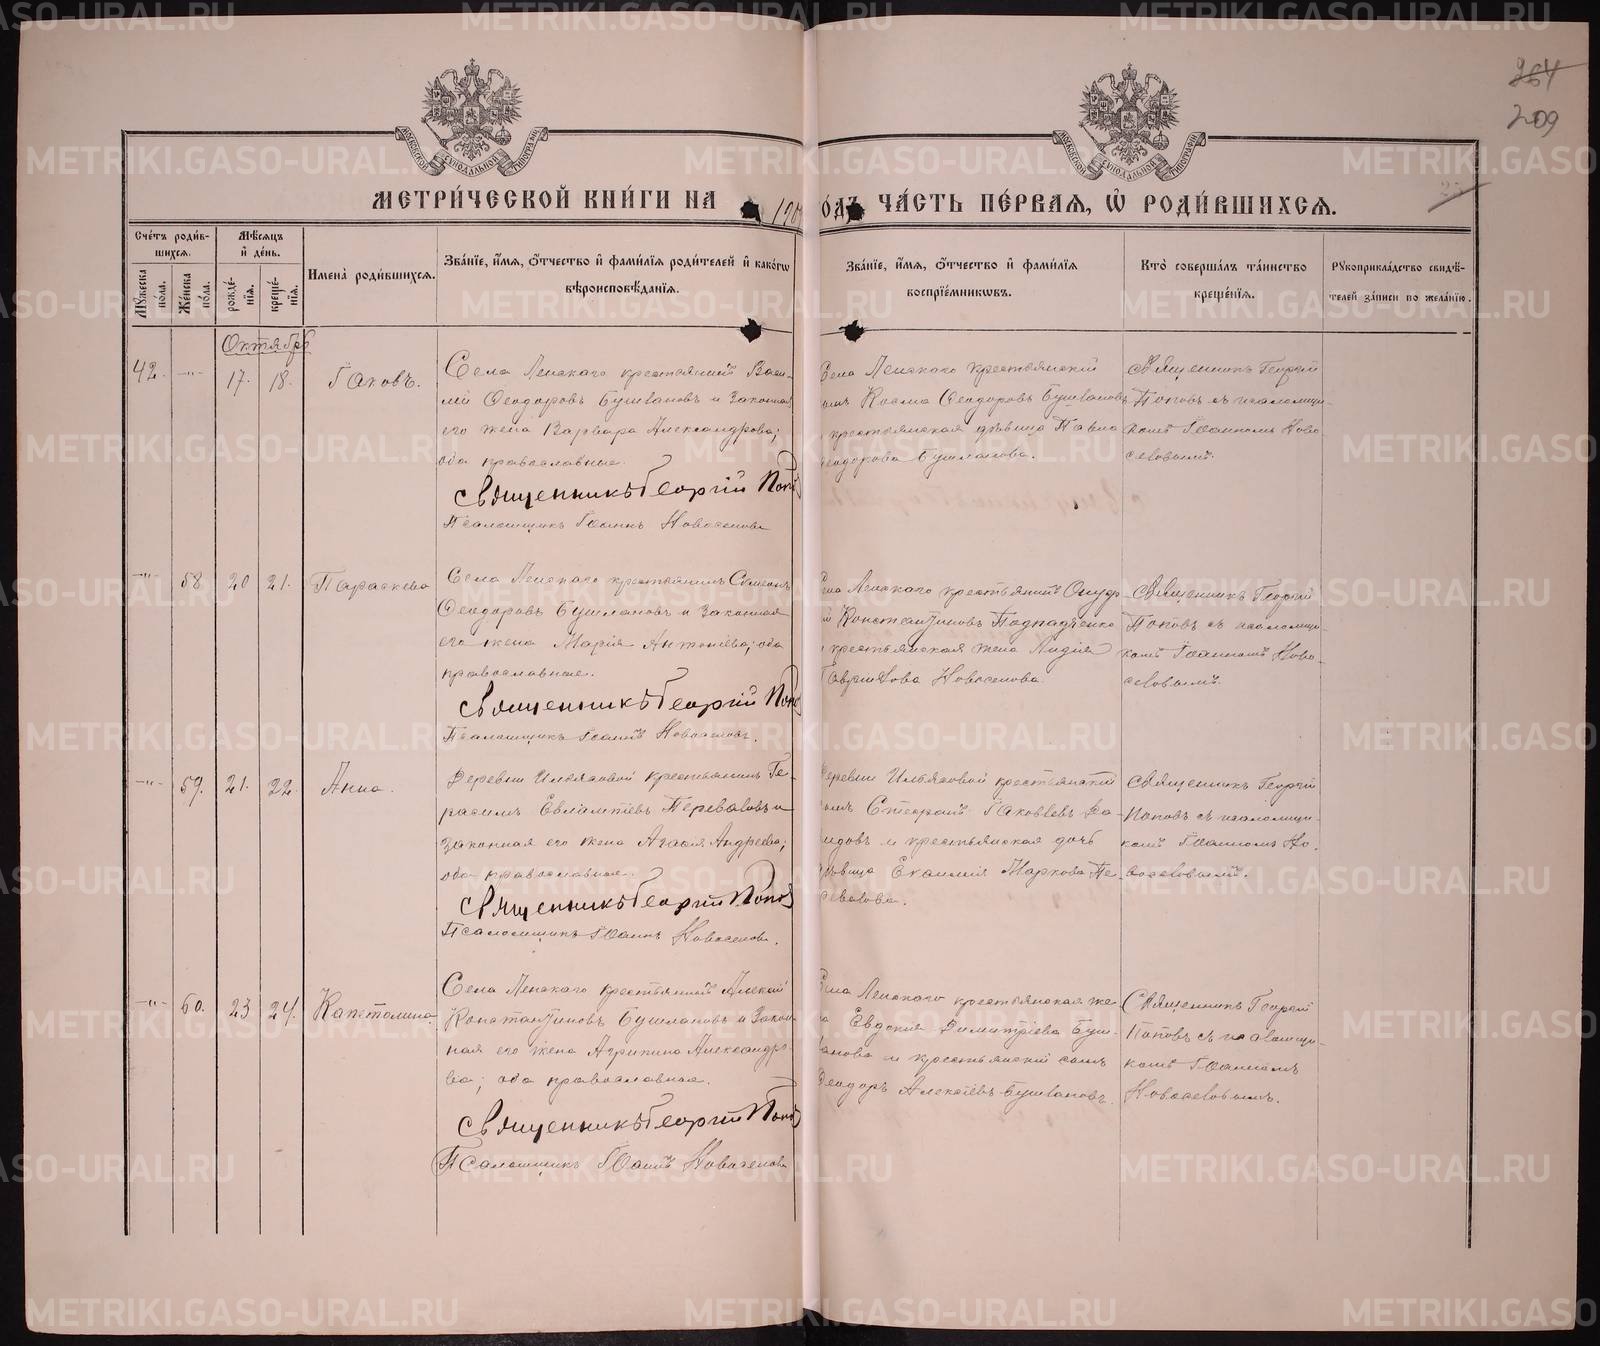 264
209
МЕТРИЧЕСКОЙ КНИГИ НА 190
ОДЪ ЧАСТЬ ПЕРВАЯ, Ѡ РОДИВШИХСЯ.
Счетъ родив-
шихся.
Мужеска пола.
Женска пола.
Мѣсяцъ и день.
рожде-
нія.
креще-
нія.
Имена родившихся.
Званіе, имя, ѻтчество и фамилія родителей и какогѡ
вѣроисповѣданія.
Званіе, имя, ѻтчество и фамилія
воспріемникѡвъ.
Кто совершалъ таинство
крещенія.
Рукоприкладство свидѣ-
телей записи по желанію.
Октябрь
42. —"— 17. 18. Іаковъ.
Села Ленскаго крестьянинъ Васи-
лій Ѳеодоровъ Бушлановъ и законная
его жена Варвара Александрова;
оба православные.
Священникъ Георгій Поп
Псаломщикъ Іоаннъ Новоселовъ
Села Ленскаго крестьянскій
сынъ Косма Ѳеодоровъ Бушлановъ
крестьянская дѣвица Павла
еодорова Бушланова.
Священникъ Георгій
Поповъ съ псаломщи-
комъ Іоанномъ Ново-
селовымъ.
—"— 58. 20 21. Параскева
Села Ленскаго крестьянинъ Симеонъ
Ѳеодоровъ Бушлановъ и законная
его жена Марія Антоніева; оба
православные.
Священникъ Георгій Поп
Псаломщикъ Іоаннъ Новоселовъ.
ела Ленскаго крестьянинъ Онуфр-
ій Константиновъ Подпадченко
и крестьянская жена Лидія
Гавриилова Новоселова.
Священникъ Георгій
Поповъ съ псаломщи-
комъ Іоанномъ Ново-
селовымъ.
—"— 59. 21. 22. Анна.
Деревни Ильясовой крестьянинъ Ге-
расимъ Евлампіевъ Переваловъ и
законная его жена Агаѳія Андреева;
оба православные.
Священникъ Георгій Попов
Псаломщикъ Іоаннъ Новоселовъ.
Деревни Ильясовой крестьянскій
сынъ Стефанъ Іаковлевъ Да-
видовъ и крестьянская дочь
дѣвица Еммилія Маркова Пе-
ревалова.
Священникъ Георгій
Поповъ съ псаломщи-
комъ Іоанномъ Но-
воселовымъ.
—"— 60. 23 24. Капитолина
Села Ленскаго крестьянинъ Алексій
Константиновъ Бушлановъ и закон-
ная его жена Агрипина Александро-
ва; оба православные.
Священникъ Георгій Попо
Псаломщикъ Іоаннъ Новоселовъ
Села Ленскаго крестьянская же-
на Евдокія Димитріева Буш-
ланова и крестьянскій сынъ
Ѳеодоръ Алексіевъ Бушлановъ.
Священникъ Георгій
Поповъ съ псаломщи-
комъ Іоанномъ
Новоселовымъ.
METRIKI.GASO-URAL.RU